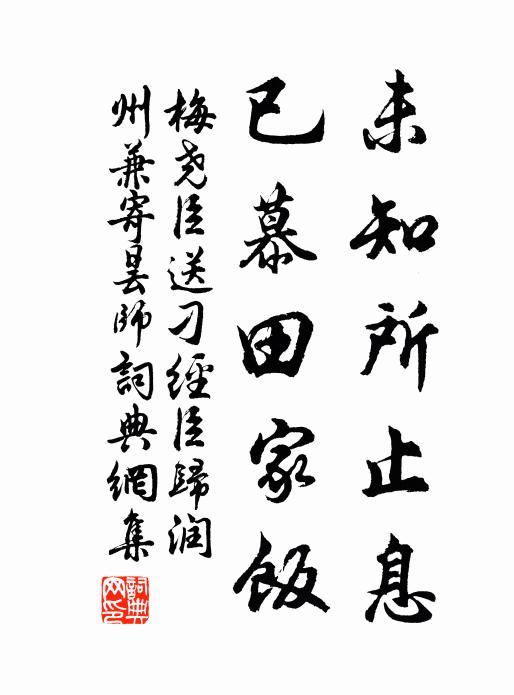 未知所止息
已慕田家飯
梅尧臣送刁經臣歸润
州兼寄曇師詞典網集
詞典网印